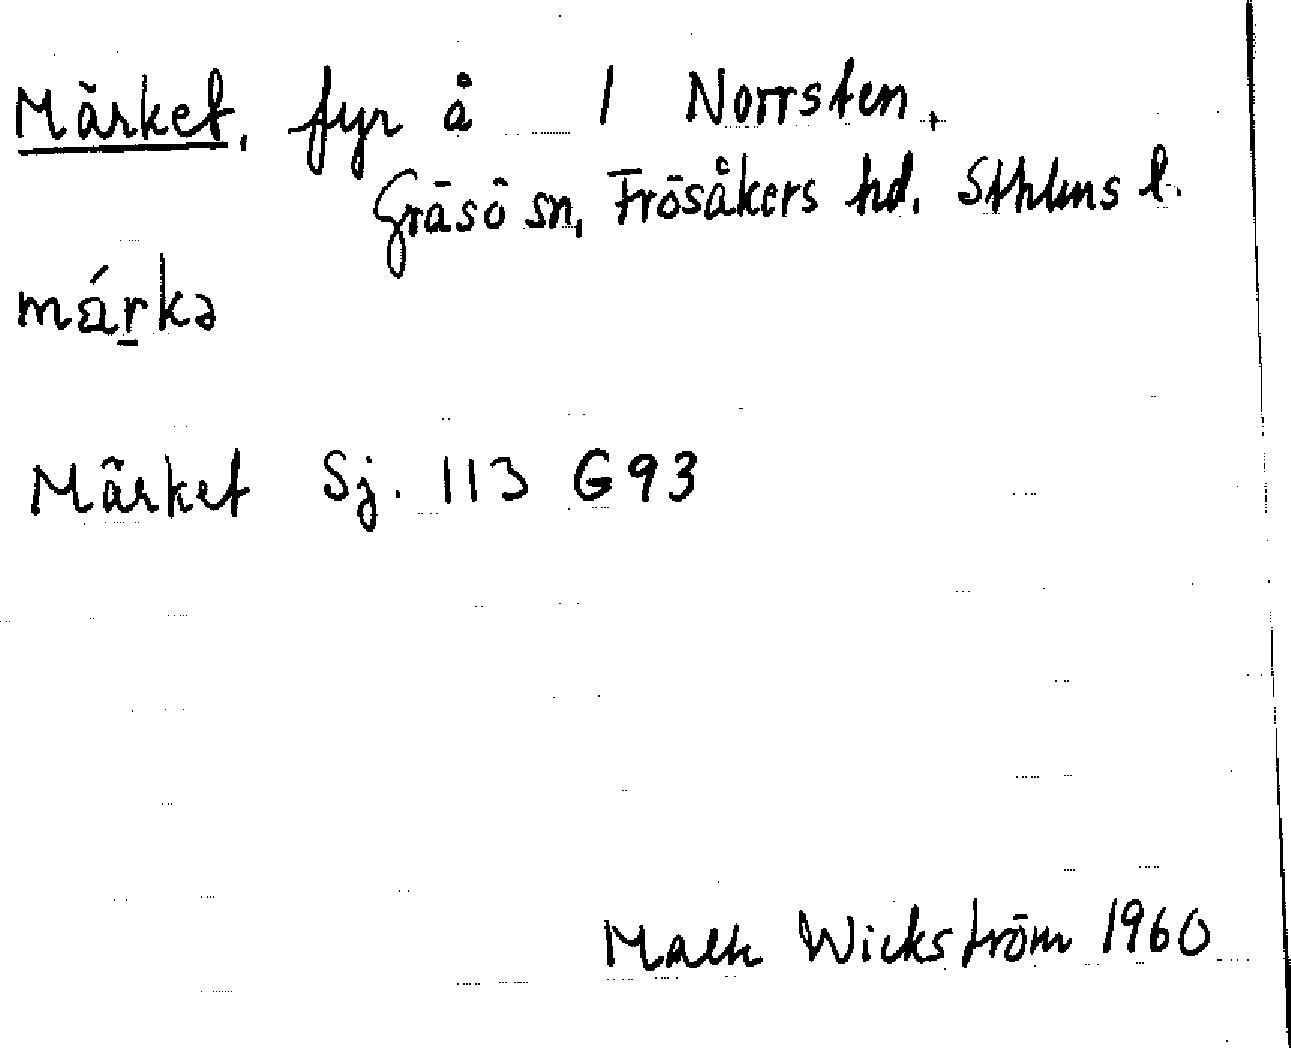 Märket, fyr å 1 Norrsten,
Gräsö sn, Frösåkers hd. Sthlms l.
má̈r̲kə
Märket Sj. 113 G93
Wickström 1960